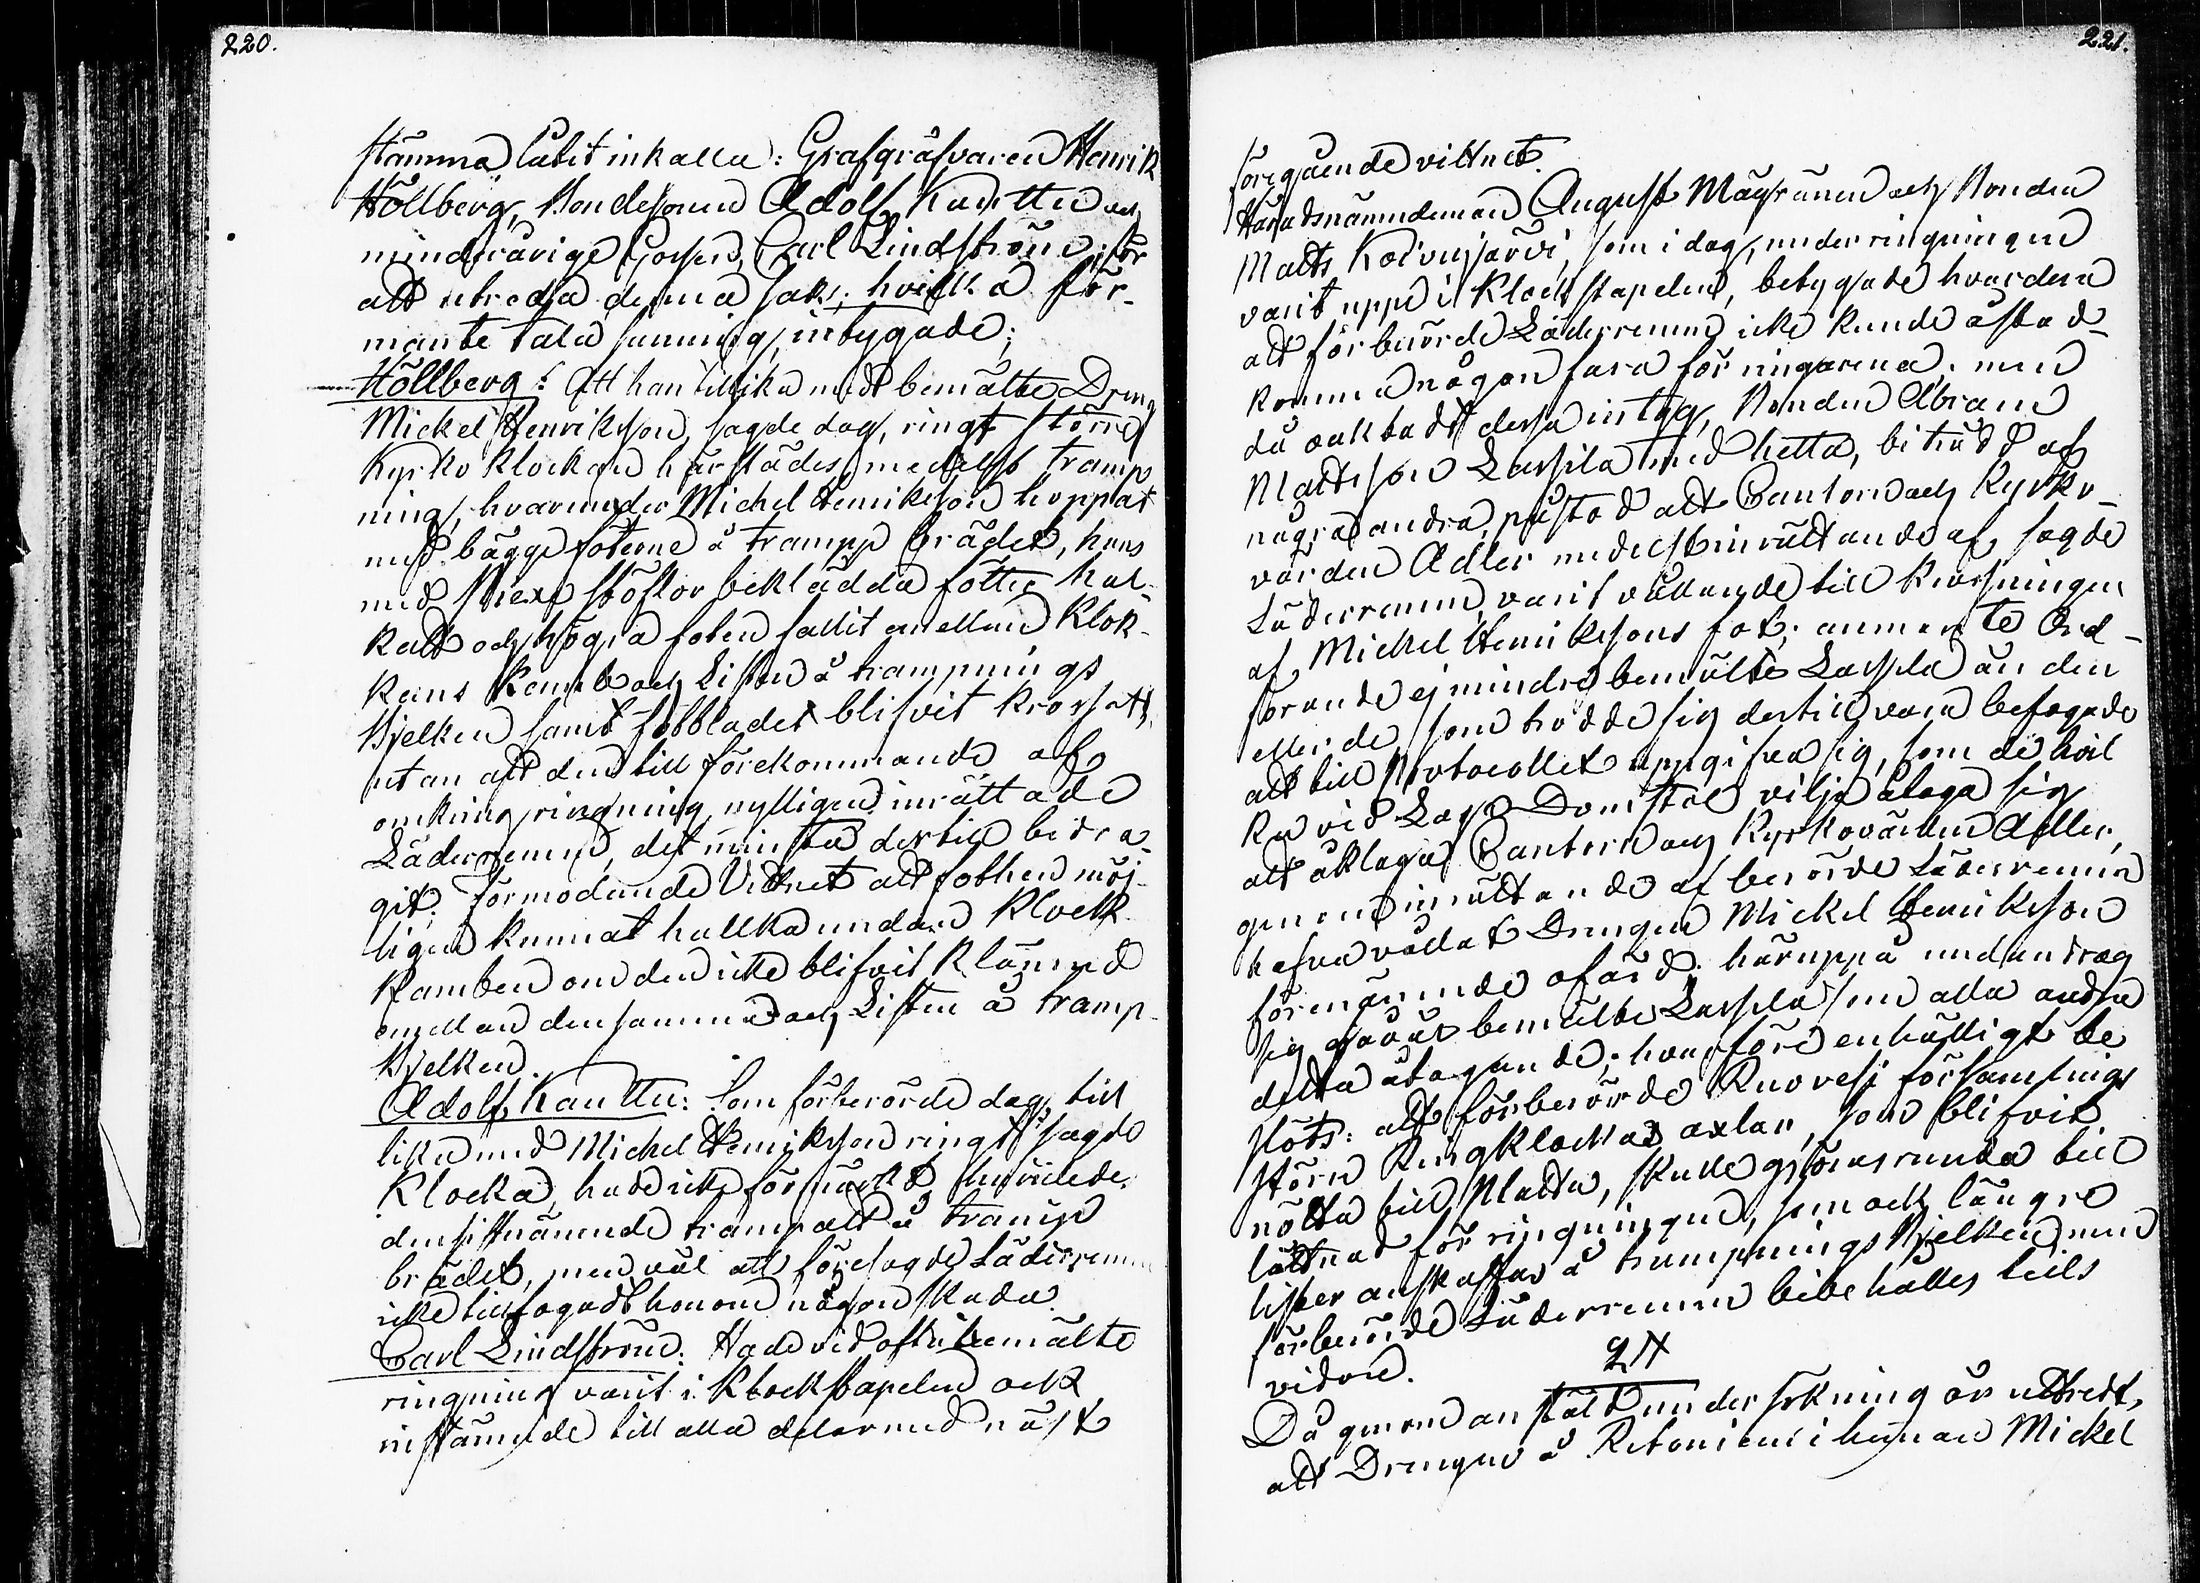 220.
stämma låtit inkalla: Grafgräfvaren Henrik
Höllberg, Bondesonen Adolf Kauttu och
minderårige Gossen Carl Lindström, för
att utreda denna sak; hvilka för-
mante tala sanning, intygade;
Höllberg: Att han tillika med bemälte Dräng
Mickel Henriksson, sagde dag, ringt större
Kyrko klockan härstädes, medelst tramp
ning, hvarunder Mickel Henriksson hoppat
med bägge fötterne å tramp brädet, hans
med stöflor beklädda fötter hal-
kat och högra foten fallit emellan Klok-
kans Kamb och Listen å trampnings
Bjelken samt fotbladet blifvit krossatt,
utan att den till förekommande af
omkring ringning nyligen inrättade
Läderremen, det minsta dertill bidra-
git; förmodande Vittnet att fothen möj-
ligen kunnat hallka undan Klock
Kamben om den icke blifvit klämd
emellan densamma och Listen å tramp-
Bjelken.
Adolf Kauttu: Som förberörde dag till
lika med Mickel Henriksson ringt sagde
Klocka, hade icke förmärkt huruledes
den sistnämnde trampat å tramp
brädet, men väl att föresagde Läderremen
icke tillfogadt honom någon skada.
Carl Lindström: Hade vid oftabemälte
ringning varit i Klockstapelen ock
instämde till alla delar med näst
221.
föregående vittnet.
Häradsnämndeman August Mäyränen och Bonden
Matts Koivujärvi, som i dag, under ringningen
varit uppe i Klockstapelen, betygade hvardera
att förberörde Läderremen icke kunde åstad-
komma någon fara för ringarena; men
då oaktadt dessa intyg, Bonden Abram
Mattsson Lassila med hetta, biträdd af
några andra, påstod att Cantorn och Kyrko-
värden Adler medelst inrättande af sagde
Läderremen, varit vållande till krossningen
af Mickel Henrikssons fot; anmante Ord-
förande ej mindre bemälte Lassila än den
eller de som trodde sig dertill vara befogade
att till Protocollet uppgifva sig, som de hvil
ka vid Laga Domstol vilja åtaga sig
att åklaga Cantorn och Kyrkovärden Adler,
genom inrättande af berörde Läderremen
hafva vållat Drängen Mickel Henriksson
förenämnde ofärd; häruppå undandrog
sig såväl bemälte Lassila som alla andra
detta åtagande; hvarföre enhälligt be
slöts: att förberörde Ruovesi församlings
större Ringklockas axlar, som blifvit
nötta till Platta, skulle göras runda till
lättnad för ringningen, som ock längre
lister anskaffas å trampnings Bjelken men
förberörde Läderremen bibehålles tills
vidare.
2§
Då genom anstäld undersökning är utredt,
att Drängen å Ritoniemi hemman Mickel